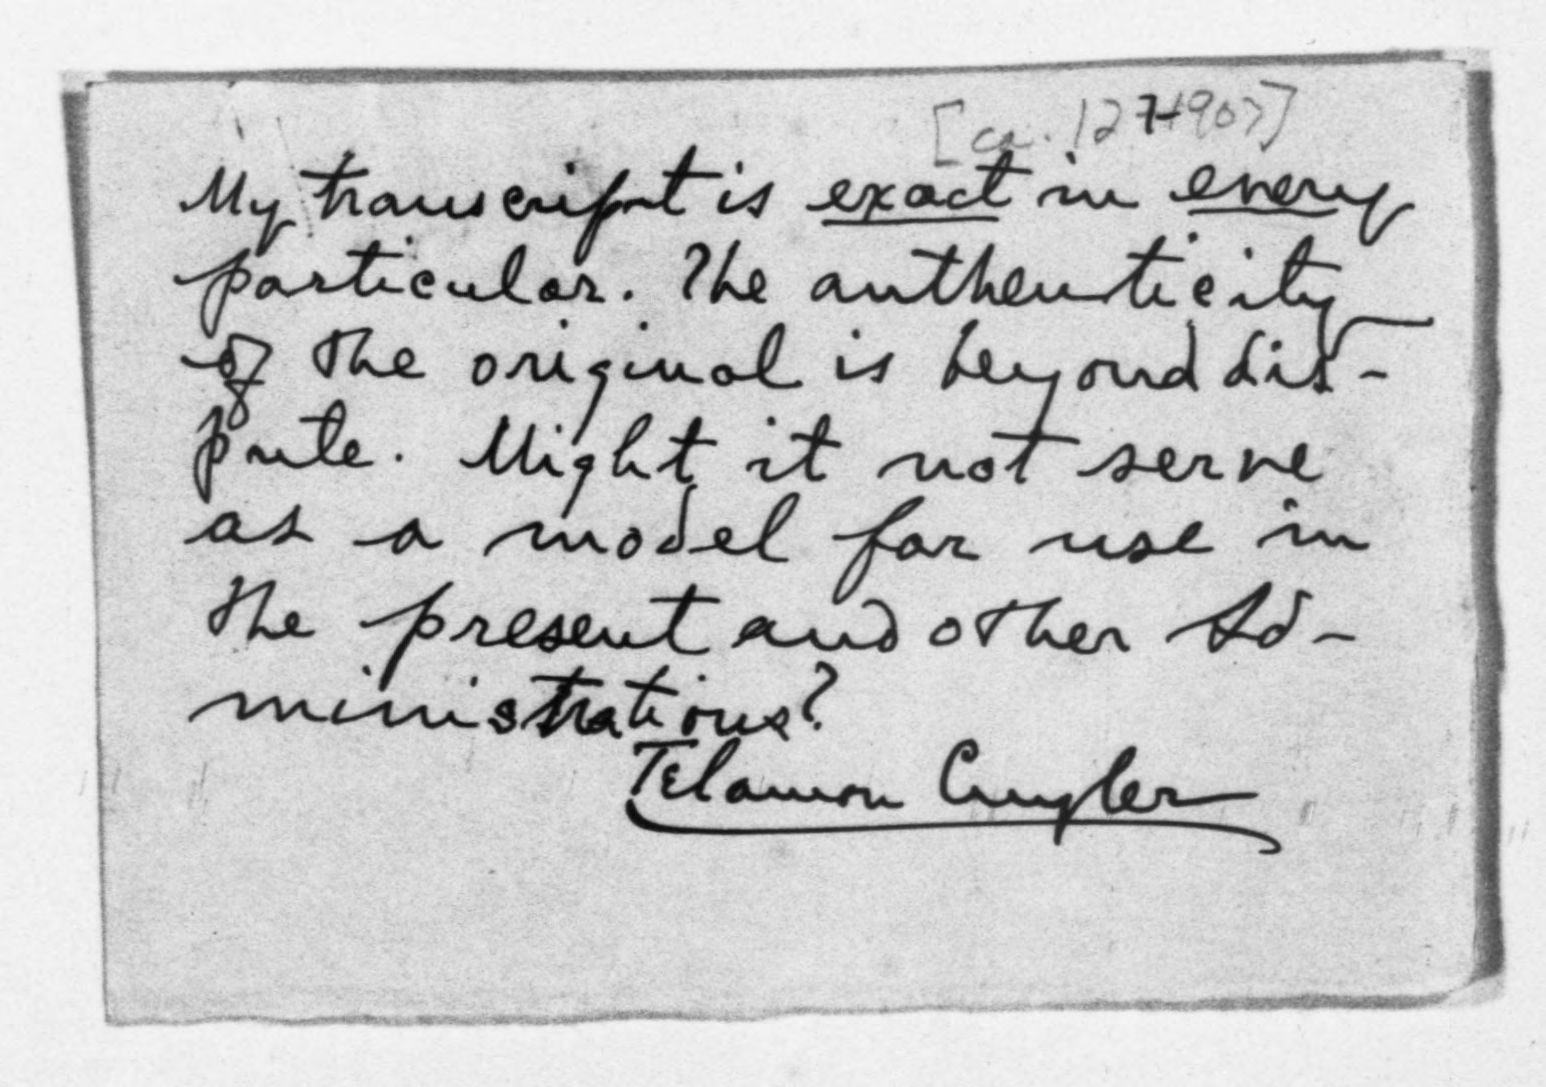 [ca. 127-1907]
My transcript is exact in every
particular. The authenticity
of the original is beyond dis-
pute. Might it not serve
as a model for use in
the present and other Ad-
ministrations?
Telamon Cuyler